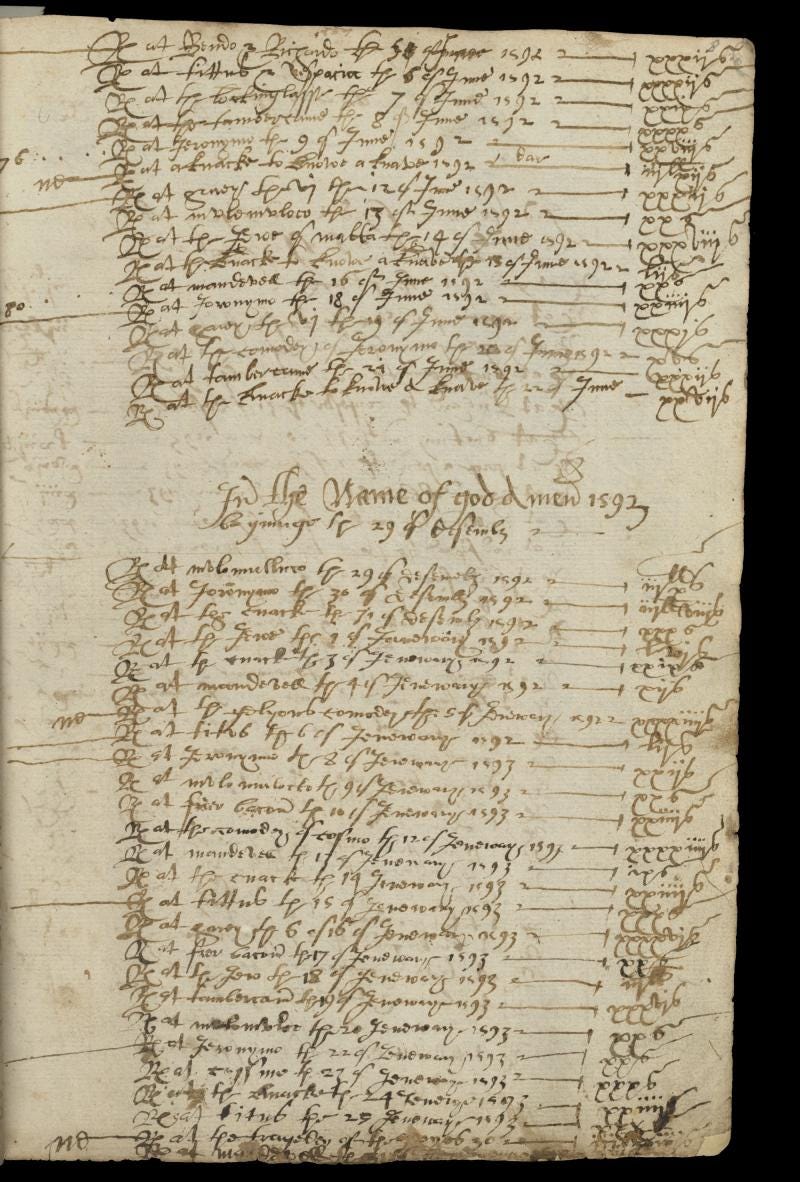 R at Bendo & Richardo the 5 of June 1592 xxxijs
R at tittus & vespacia the 6 of June 1592
R at the lockinglasse the 7 of June 1592 xxixs
R at the tambercame the 8 of June 1592 xxxxs
R at Jeronymo the 9 of June 1592 xxviijs
R at a knacke to knowe a knave 1592 day
ne
R at harey the vj the 12 of June 1592
R at mulemuloco the 13 of June 1592 xxs
R at the Jewe of malta the 14 of June 1592 xxxviijs
R at the knacke to knowe a knave the 15 of June 1592 lijs
R at mandevell the 16 of June 1592 xxs
R at Joronymo the 18 of June 1592 xxiiijs
80
R at harey the vj the 19 of June 1592 xxxjs
R at the comodey of Jeronymo the 20 of June 1592 xvs
R at tambercame the 21 of June 1592 xxxijs
R at the knacke to knowe a knave the 22 of June xxvijs
In the Name of god Amen 1592
begninge the 29 of desembz
R at mulomulluco the 29 of desembz 1592
R at Joronymo the 30 of desembz 1592
R at the cnacke the 31 of desembz 1592 xxxs
R at the Jewe the 1 of Jenewary 1592
R at the cnack the 3 of Jenewary 1592 xxixs
R at mandevell the 4 of Jenewary 1592 xijs
ne
R at the gelyous comodey the 5 of Jenewary 1592 xxxxiiijs
R at titus the 6 of Jenewary 1592
R at Jeronymo the 8 of Jenewary 1593 xxijs
R at mulomulocko the 9 of Jenewary 1593 xxs
R at frer bacon the 10 of Jenewary 1593 xxiiijs
R at the comodey of cosmo the 12 of Jenewary 1593 xxxxiiijs
R at mandevell the 13 of Jenewary 1593 ixs
R at the cnacke the 14 Jenewary 1593 xxiiijs
R at tittus the 15 of Jenewary 1593 xxxs
R at harey the 6 of 16 of Jenewary 1593 xxxxvjs
R at frer bacon the 17 of Jenewary 1593 xxs
R at the Jew the 18 of Jenewary 1593
R at tambercam the 19 of Jenewary 1593 xxxvjs
R at mulomuloc the 20 Jenewary 1593 xxs
R at Jeronymo the 22 of Jenewary 1593 xxs
R at cossmo the 23 of Jenewary 1593 xxxs
R at the knacke the 24 Jenewary 1593
R at titus the 25 Jenewary 1593
ne
R at the tragedey of the 30
R at